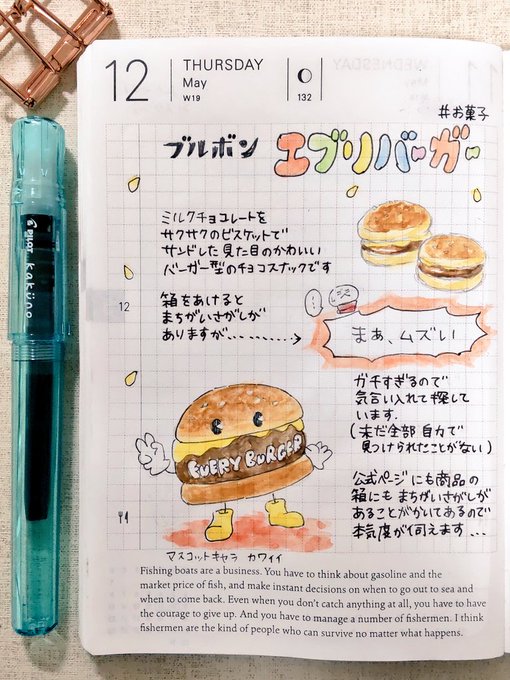 12
THURSDAY
May
W19
132
#お菓子
ブルボン エブリバーガー
ミルクチョコレートを
サクサクのビスケットで
サンドした見た目のかわいい
バーガー型のチョコスナックです
12
箱をあけると
まちがいさがしが
ありますが............
まぁ、ムズい
ガチすぎるので
気合い入れて探して
います.
(未だ全部自力で
見つけられたことがない)
公式ページにも商品の
箱にもまちがいさがしが
あることがかいてあるので
本気度が伺えます...
EVERY BURGER
マスコットキャラ カワイイ
Fishing boats are a business. You have to think about gasoline and the
market price of fish, and make instant decisions on when to go out to sea and
when to come back. Even when you don't catch anything at all, you have to have
the courage to give up. And you have to manage a number of fishermen. I think
fishermen are the kind of people who can survive no matter what happens.
PILOT kaküno